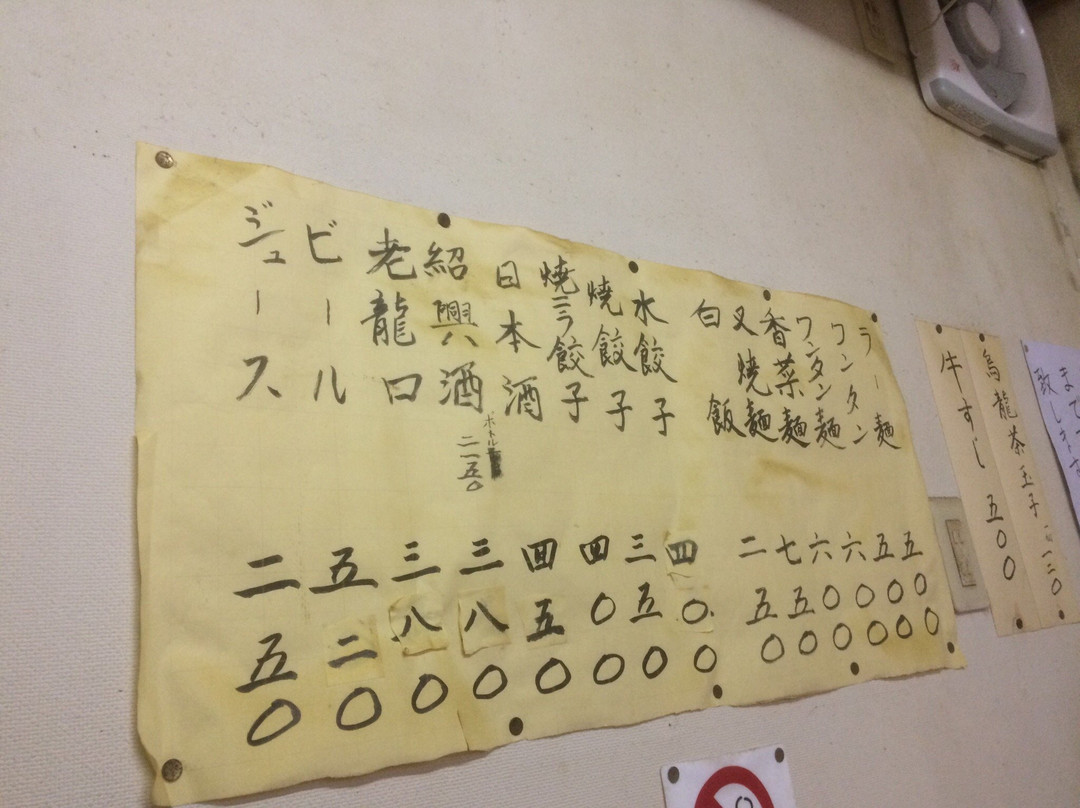 烏龍茶玉子 一二〇
牛すじ 五〇〇
ラー麺 五〇〇
ワンタン 五〇〇
ワンタン麺 六〇〇
香菜麺 六〇〇
叉焼麺 七五〇
白飯 二五〇
水餃子 四〇〇
焼餃子 三五〇
焼ニラ餃子 四〇〇
日本酒 四五〇
紹興酒 三八〇
ボトル 二一五〇
老龍口 三八〇
ビール 五二〇
ジュース 二五〇